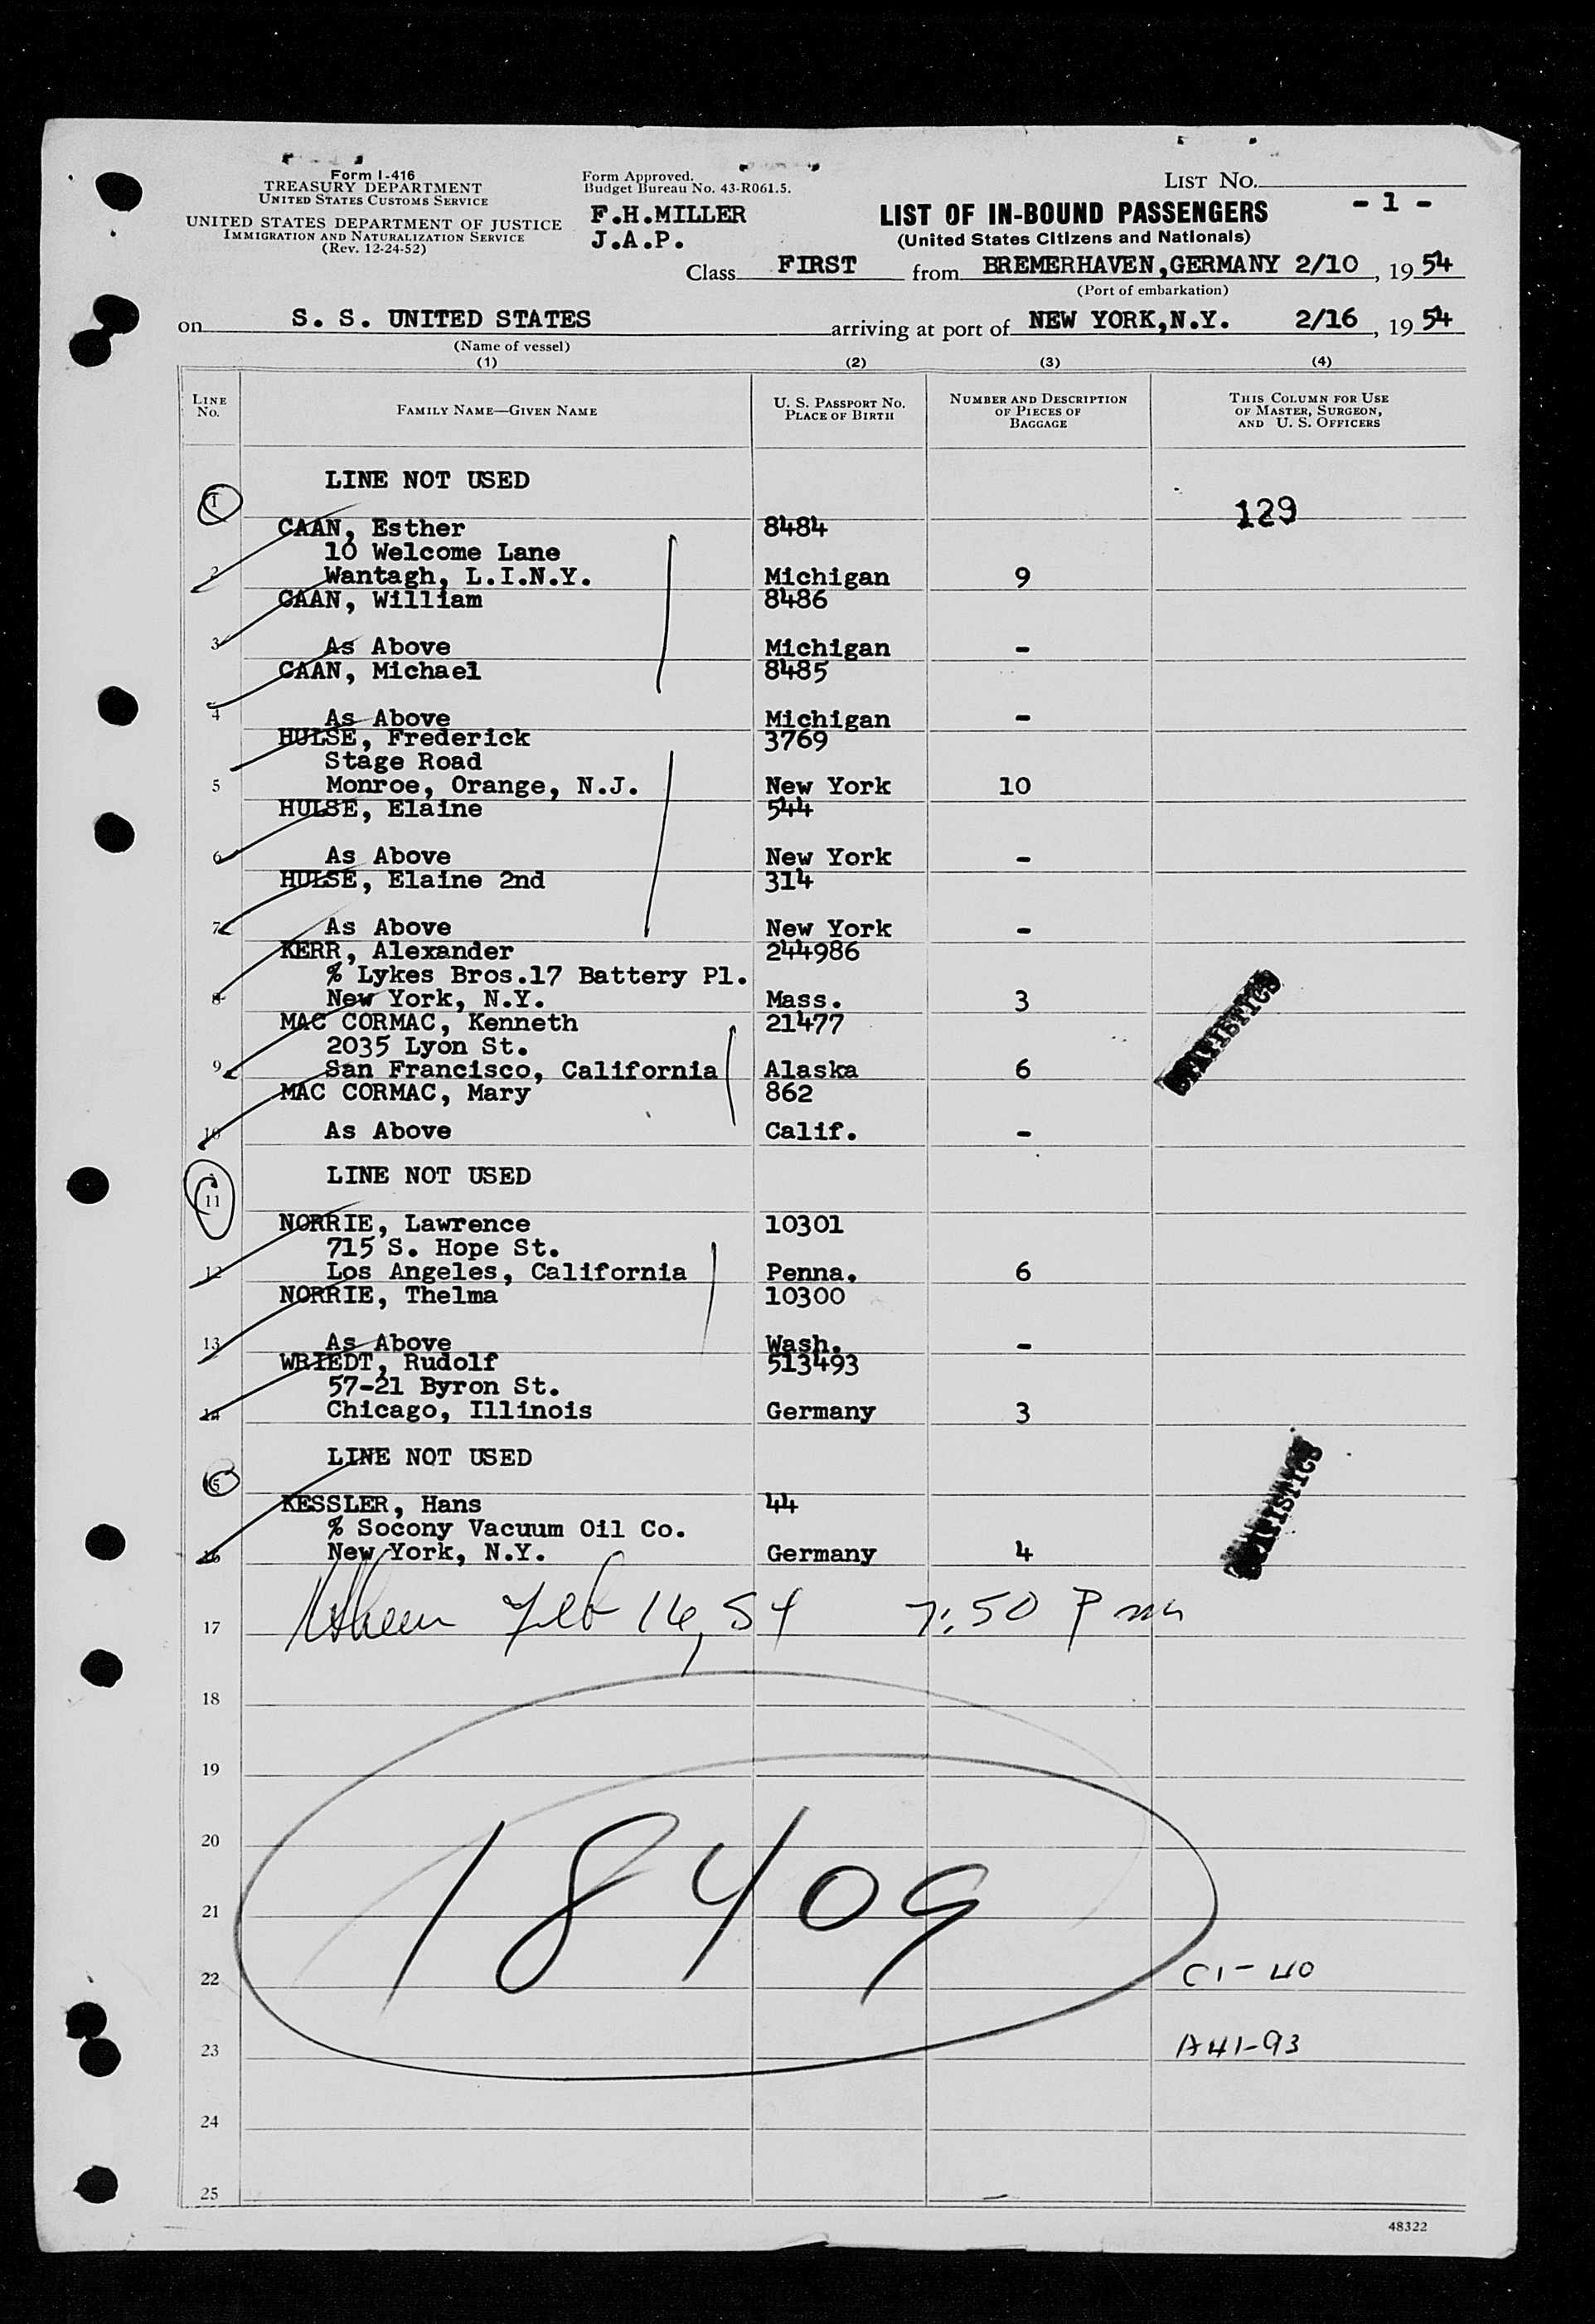 Form I-416
TREASURY DEPARTMENT
UNITED STATES CUSTOMS SERVICE
UNITED STATES DEPARTMENT OF JUSTICE
IMMIGRATION AND NATURALIZATION SERVICE
(Rev. 12-24-52)
Form Approved.
Budget Bureau No. 43-R061.5.
F.H.MILLER
J.A.P.
LIST No.
- 1 -
LIST OF IN-BOUND PASSENGERS
(United States Citizens and Nationals)
Class FIRST from BREMERHAVEN,GERMANY 2/10, 1954
(Port of embarkation)
on S. S. UNITED STATES arriving at port of NEW YORK,N.Y. 2/16, 1954
(Name of vessel)
(1) (2) (3) (4)
LINE No. FAMILY NAME—GIVEN NAME U. S. PASSPORT No. PLACE OF BIRTH NUMBER AND DESCRIPTION OF PIECES OF BAGGAGE THIS COLUMN FOR USE OF MASTER, SURGEON, AND U. S. OFFICERS
LINE NOT USED
1 129
CAAN, Esther 8484
10 Welcome Lane
2 Wantagh, L.I.N.Y. Michigan 9
CAAN, William 8486
3 As Above Michigan -
CAAN, Michael 8485
4 As Above Michigan -
HULSE, Frederick 3769
Stage Road
5 Monroe, Orange, N.J. New York 10
HULSE, Elaine 544
6 As Above New York -
HULSE, Elaine 2nd 314
7 As Above New York -
KERR, Alexander 244986
% Lykes Bros.17 Battery Pl.
8 New York, N.Y. Mass. 3
MAC CORMAC, Kenneth 21477
2035 Lyon St.
9 San Francisco, California Alaska 6
STATISTICS
MAC CORMAC, Mary 862
10 As Above Calif. -
LINE NOT USED
11
NORRIE, Lawrence 10301
715 S. Hope St.
12 Los Angeles, California Penna. 6
NORRIE, Thelma 10300
13 As Above Wash. -
WRIEDT, Rudolf 513493
57-21 Byron St.
14 Chicago, Illinois Germany 3
LINE NOT USED
15
KESSLER, Hans 44
% Socony Vacuum Oil Co.
16 New York, N.Y. Germany 4
STATISTICS
17 Feb 16, 54 7:50 P m
18
19
20
18409
21
22 C1-40
23 A41-93
24
25
48322